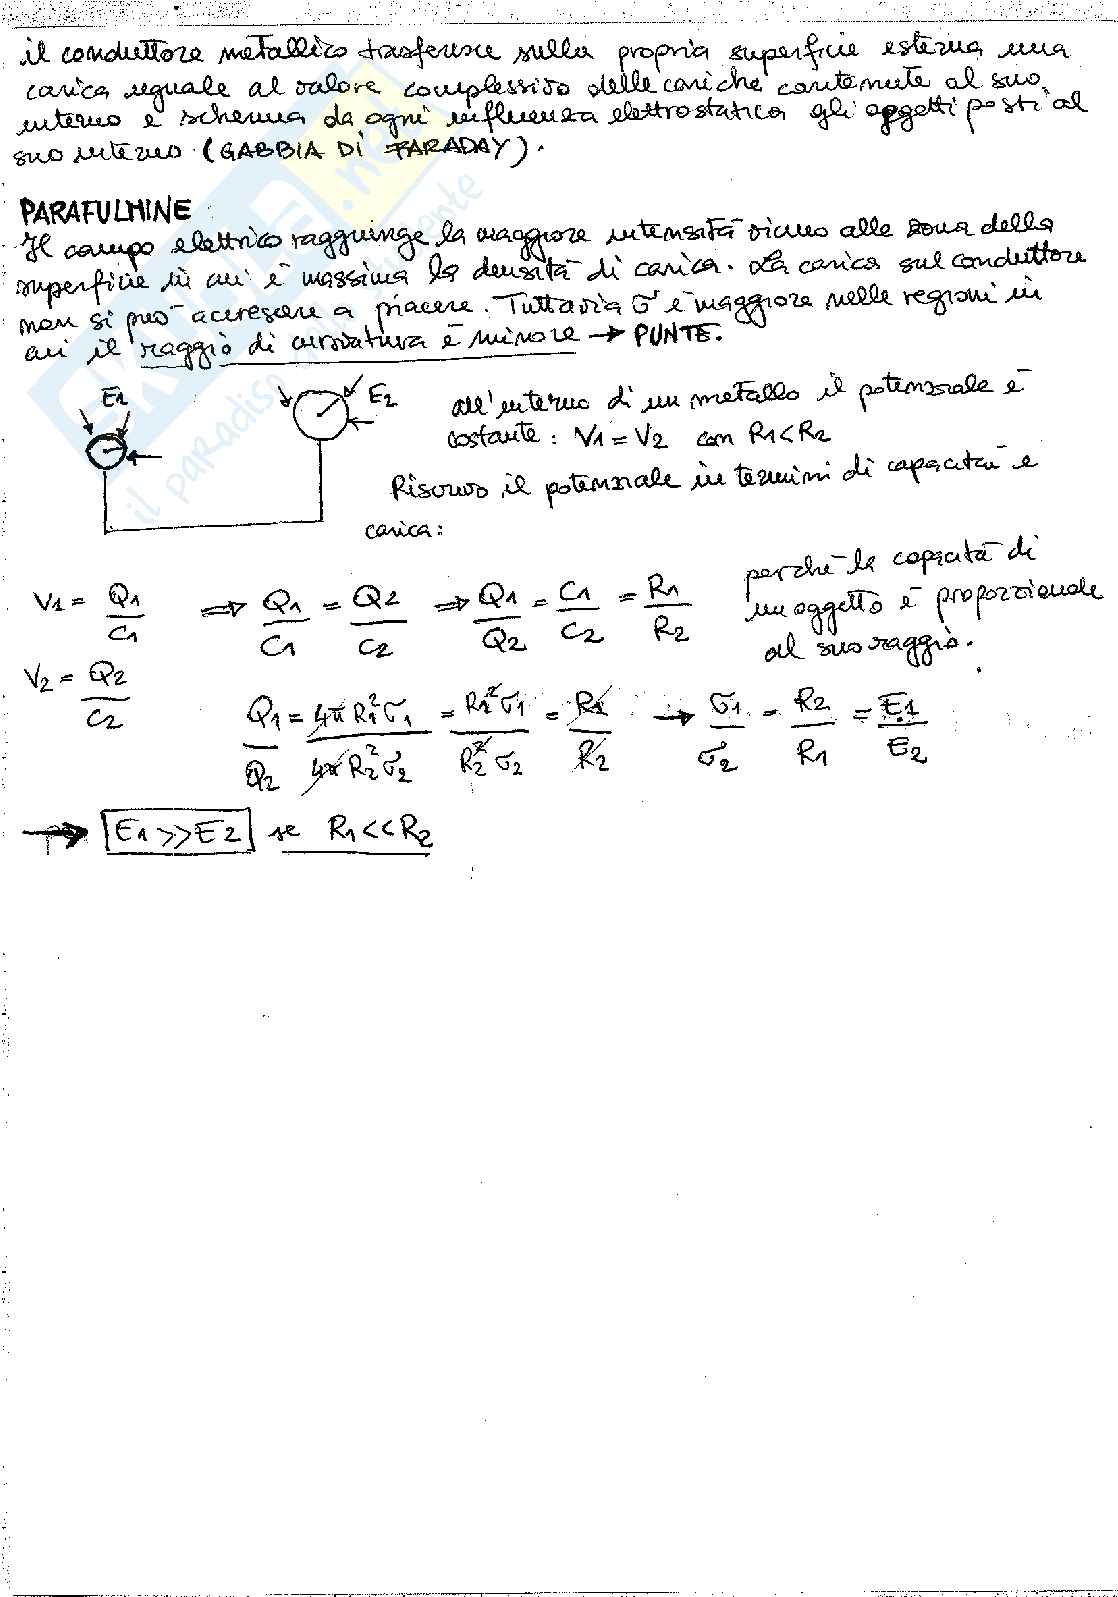 il conduttore metallico trasferisce sulla propria superficie esterna una
carica uguale al valore complessivo delle cariche contenute al suo
interno e scherma da ogni influenza elettrostatica gli oggetti posti al
suo interno. (GABBIA DI FARADAY).
PARAFULMINE
Il campo elettrico raggiunge la maggiore intensità vicino alle zona della
superficie in cui è massima la densità di carica. La carica sul conduttore
non si può accrescere a piacere. Tuttavia σ è maggiore nelle regioni in
cui il raggio di curvatura è minore → PUNTE.
E1 E2
all'interno di un metallo il potenziale è
costante: V1 = V2 con R1<R2
Riscrivo il potenziale in termini di capacità e
carica:
V1 = Q1/C1 ⇒ Q1/C1 = Q2/C2 ⇒ Q1/Q2 = C1/C2 = R1/R2
perché la capacità di
un oggetto è proporzionale
al suo raggio.
V2 = Q2/C2
Q1/Q2 = 4π R1² σ1 / 4π R2² σ2 = R1² σ1 / R2² σ2 = R1/R2 → σ1/σ2 = R2/R1 = E1/E2
→ E1 >> E2 se R1 << R2
il paradiso